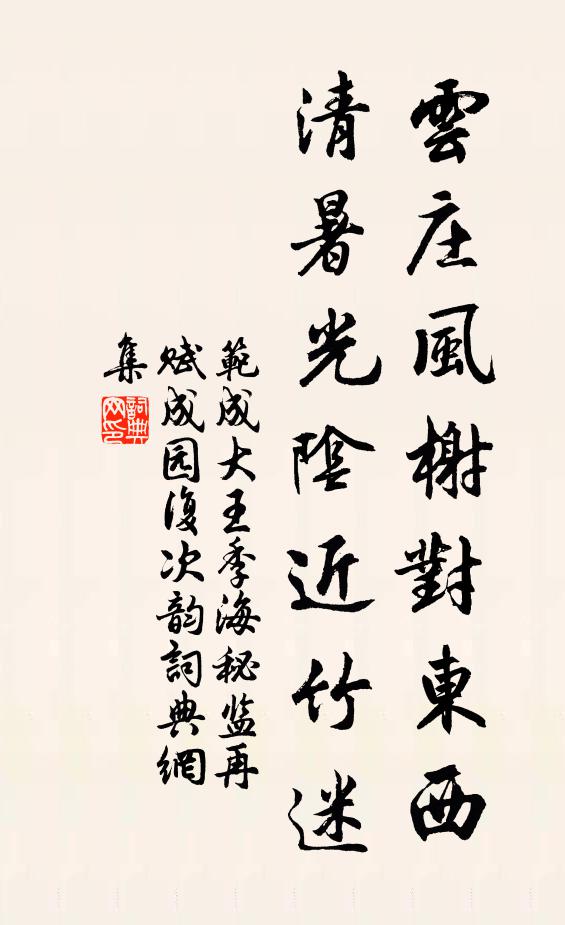 雲庄風榭對東西
清暑光陰近竹迷
範成大王季海秘监再
赋成园復次韵詞典網
集
詞典网印